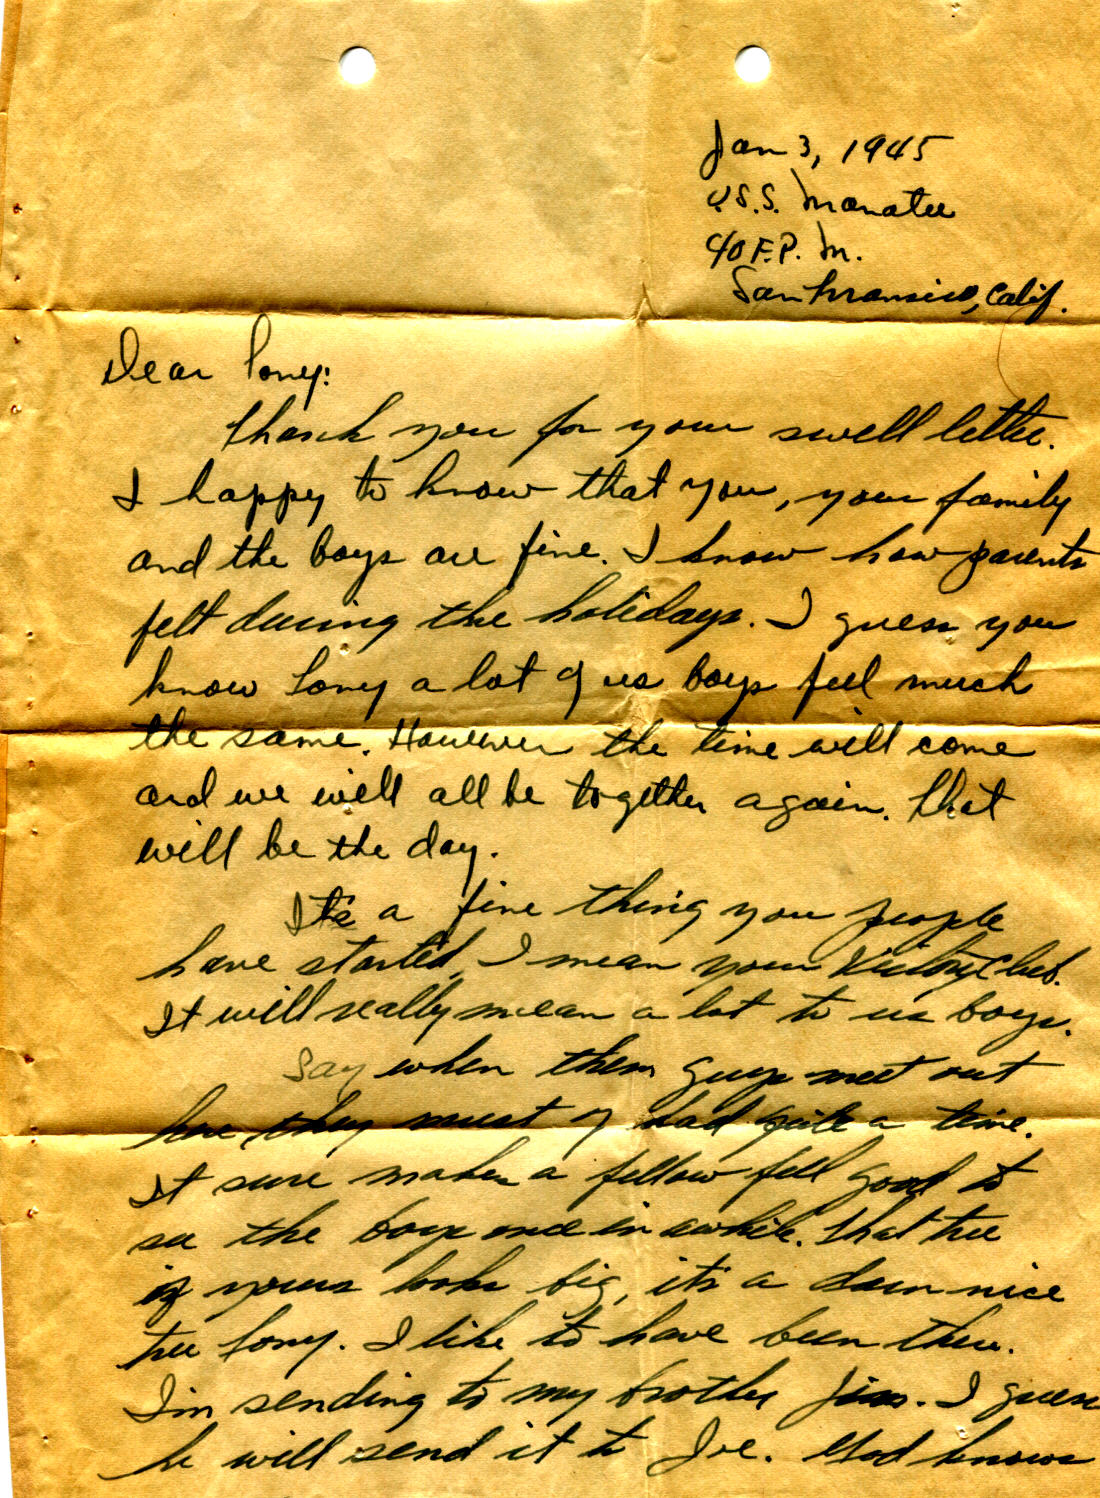 Jan 3, 1945
U.S.S. Manatee
c/o F.P. M.
San Fransisco, Calif.
Dear Tony:
Thank you for your swell letter.
I happy to know that you, your family
and the boys are fine. I know how parents
felt during the holidays. I guess you
know Tony a lot of us boys feel much
the same. However the time will come
and we will all be together again. That
will be the day.
It's a fine thing you people
have started, I mean your Victory Club.
It will really mean a lot to us boys.
Say when them guys meet out
here they must of had quite a time.
It sure makes a fellow feel good to
see the boys once in awhile. That tree
of yours looks big, it's a darn nice
tree Tony. I like to have been there.
I'm sending to my brother Jim. I guess
he will send it to Joe. God knows